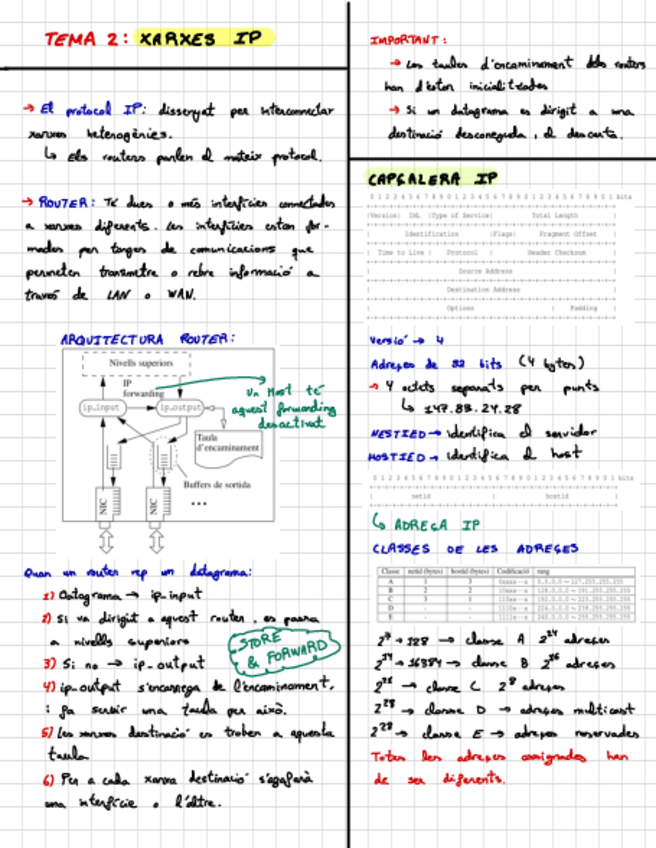 TEMA 2: XARXES IP
→ El protocol IP: dissenyat per interconnectar
xarxes heterogènies.
↳ Els routers parlen el mateix protocol.
→ ROUTER: Té dues o més interfícies connectades
a xarxes diferents. Les interfícies estan for-
mades per targes de comunicacions que
permeten transmetre o rebre informació a
través de LAN o WAN.
ARQUITECTURA ROUTER:
Nivells superiors
IP
forwarding
ip_input
ip_output
Un Host té
aquest forwarding
desactivat
Taula
d'encaminament
Buffers de sortida
NIC
NIC
...
Quan un router rep un datagrama:
1) Datagrama → ip_input
2) Si va dirigit a aquest router, es passa
a nivells superiors
3) Si no → ip_output
STORE
& FORWARD
4) ip_output s'encarrega de l'encaminament,
i fa servir una taula per això.
5) Les xarxes destinació es troben a aquesta
taula
6) Per a cada xarxa destinació s'agafarà
una interfície o l'altre.
IMPORTANT:
→ Les taules d'encaminament dels routers
han d'estar inicialitzades
→ Si un datagrama es dirigit a una
destinació desconeguda, el descarta.
CAPÇALERA IP
0 1 2 3 4 5 6 7 8 9 0 1 2 3 4 5 6 7 8 9 0 1 2 3 4 5 6 7 8 9 0 1 bits
|Version| IHL |Type of Service| Total Length |
| Identification |Flags| Fragment Offset |
| Time to Live | Protocol | Header Checksum |
| Source Address |
| Destination Address |
| Options | Padding |
Versió → 4
Adreces de 32 bits (4 bytes)
→ 4 octets separats per punts
↳ 147.83.24.28
NETID → identifica el servidor
HOSTID → identifica el host
0 1 2 3 4 5 6 7 8 9 0 1 2 3 4 5 6 7 8 9 0 1 2 3 4 5 6 7 8 9 0 1 bits
| netid | hostid |
↳ ADREÇA IP
CLASSES DE LES ADRECES
Classe netid (bytes) hostid (bytes) Codificació rang
A 1 3 0xxx~x 0.0.0.0 ~ 127.255.255.255
B 2 2 10xx~x 128.0.0.0 ~ 191.255.255.255
C 3 1 110x~x 192.0.0.0 ~ 223.255.255.255
D - - 1110~x 224.0.0.0 ~ 239.255.255.255
E - - 1111~x 240.0.0.0 ~ 255.255.255.255
2⁷ → 128 → classe A 2²⁴ adreces
2¹⁴ → 16384 → classe B 2¹⁶ adreces
2²¹ → classe C 2⁸ adreces
2²⁸ → classe D → adreces multicast
2²⁸ → classe E → adreces reservades
Totes les adreces assignades han
de ser diferents.